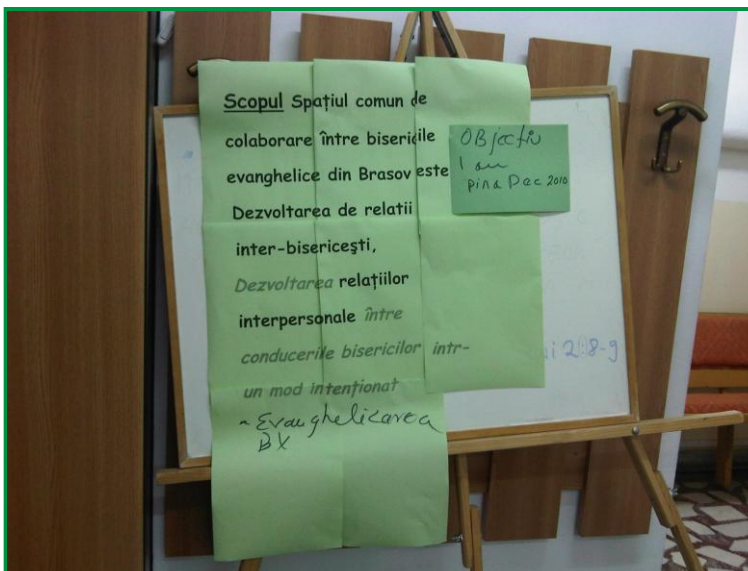 Scopul Spațiul comun de
colaborare între bisericile
evanghelice din Brasov este
Dezvoltarea de relatii
inter-bisericești,
Dezvoltarea relațiilor
interpersonale între
conducerile bisericilor intr-
un mod intenționat
- Evanghelizarea
BV
OBjectiv
1 an
pina Dec 2010
2:8-9